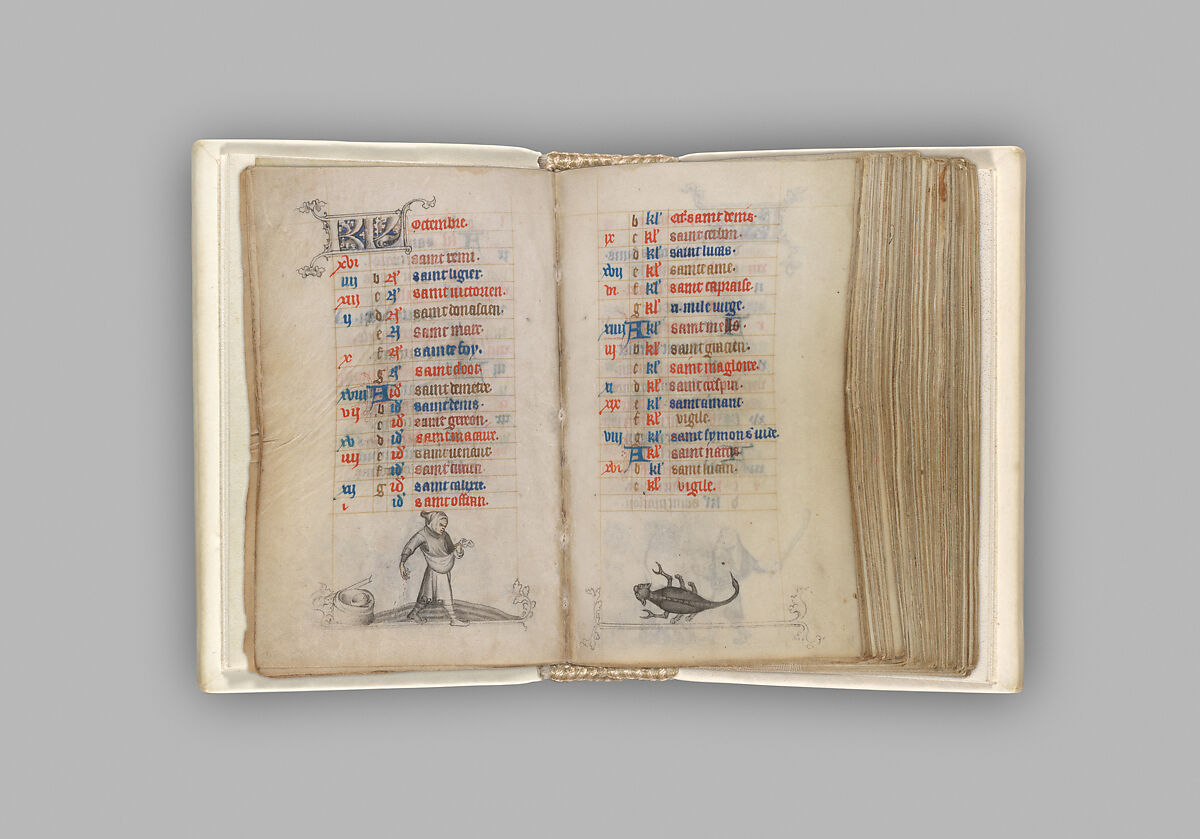 KL Octembre.
xvi saint remi.
iiij b N saint ligier.
xiij c N saint victorien.
ij d N saint donascien.
e N saint marc.
x f N sainte foy.
g N saint
xviij A id saint demetre.
vij b id saint denis.
c id saint gereon.
xv d id saint macaire.
iiij e id saint venant.
f id saint
xij g id saint calixte.
i id saint
b kl' Oct' saint denis.
ix c kl' saint
d kl' saint lucas.
xvij e kl' sainte ame.
vi f kl' saint capraise.
g kl' xi. mile virge.
xiiij A kl' saint mellos.
iij b kl' saint gracien.
c kl' saint magloire.
xi d kl' saint crespin.
xix e kl' saint amant.
f kl' vigile.
viij g kl' saint symon s' iude.
A kl' saint narcis.
xvi b kl' saint lucan.
c kl' vigile.